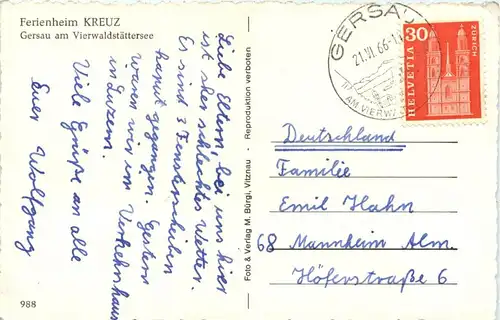 Ferienheim KREUZ
Gersau am Vierwaldstättersee
Liebe Eltern, bei uns hier
ist aber schlechtes Wetter.
Es sind 3 Fensterscheiben
kaputt gegangen. Gestern
waren wir im Verkehrshaus
in Luzern.
Viele Grüße an alle
Euer Wolfgang
988
Foto & Verlag M. Bürgi, Vitznau - Reproduktion verboten
GERSAU
21.VI.66-11
AM VIERWALD
30
HELVETIA
ZÜRICH
Deutschland
Familie
Emil Hahn
68 Mannheim Alm.
Höferstraße 6